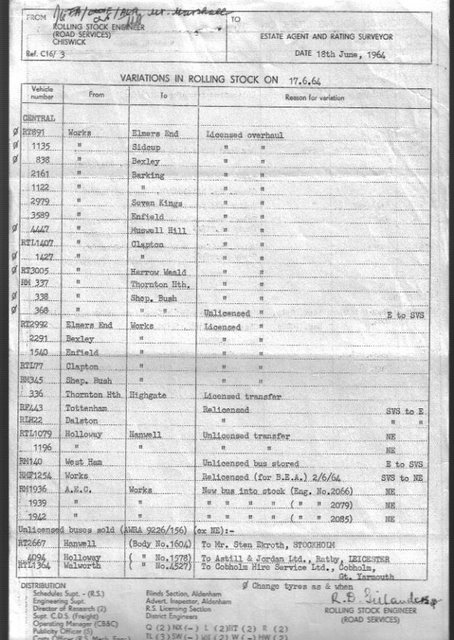 FROM
TO
ROLLING STOCK ENGINEER
(ROAD SERVICES)
CHISWICK
ESTATE AGENT AND RATING SURVEYOR
Ref. C16/ 3
DATE 18th June, 1964
VARIATIONS IN ROLLING STOCK ON 17.6.64
Vehicle number From To Reason for variation
CENTRAL
Ø RT891 Works Elmers End Licensed overhaul
Ø 1135 " Sidcup " "
Ø 838 " Bexley " "
2161 " Barking " "
1122 " " " "
2979 " Seven Kings " "
3589 " Enfield " "
Ø 4447 " Muswell Hill " "
RTL1407 " Clapton " "
Ø 1427 " " " "
Ø RT3005 " Harrow Weald " "
RM 337 " Thornton Hth. " "
Ø 338 " Shep. Bush " "
Ø 368 " " Unlicensed " E to SVS
RT2992 Elmers End Works Licensed "
2291 Bexley " " "
1540 Enfield " " "
RTL77 Clapton " " "
RM345 Shep. Bush " " "
336 Thornton Hth Highgate Licensed transfer
RF443 Tottenham Relicensed SVS to E
RLH22 Dalston " " "
RTL1079 Holloway Hanwell Unlicensed transfer NE
1196 " " " " NE
RM140 West Ham Unlicensed bus stored E to SVS
RMF1254 Works Relicensed (for B.E.A.) 2/6/64 SVS to NE
RM1936 A.E.C. Works New bus into stock (Eng. No.2066) NE
1939 " " " " " " ( " " 2079) NE
1942 " " " " " " ( " " 2085) NE
Unlicensed buses sold (AWRA 9226/156) (ex NE):-
RT2667 Hanwell (Body No.1604) To Mr. Sten Ekroth, STOCKHOLM
4094 Holloway ( " No.1778) To Astill & Jordan Ltd., Ratby, LEICESTER
RTL1364 Walworth ( " No.4527) To Cobholm Hire Service Ltd., Cobholm,
Gt. Yarmouth
Ø Change tyres as & when
DISTRIBUTION
Schedules Supt. - (R.S.)
Engineering Supt.
Director of Research (2)
Supt. C.D.S. (Freight)
Operating Manager (CB&C)
Publicity Officer (5)
Blinds Section, Aldenham
Advert. Inspector, Aldenham
R.S. Licensing Section
District Engineers
ROLLING STOCK ENGINEER
(ROAD SERVICES)